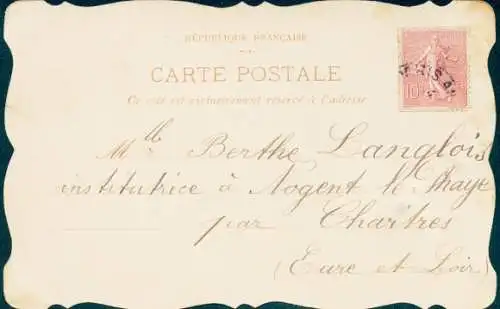 RÉPUBLIQUE FRANÇAISE
CARTE POSTALE
Ce côté est exclusivement réservé à l'adresse
10
Mlle Berthe Langlois
institutrice à Nogent le Phaye
par Chartres
(Eure et Loir)